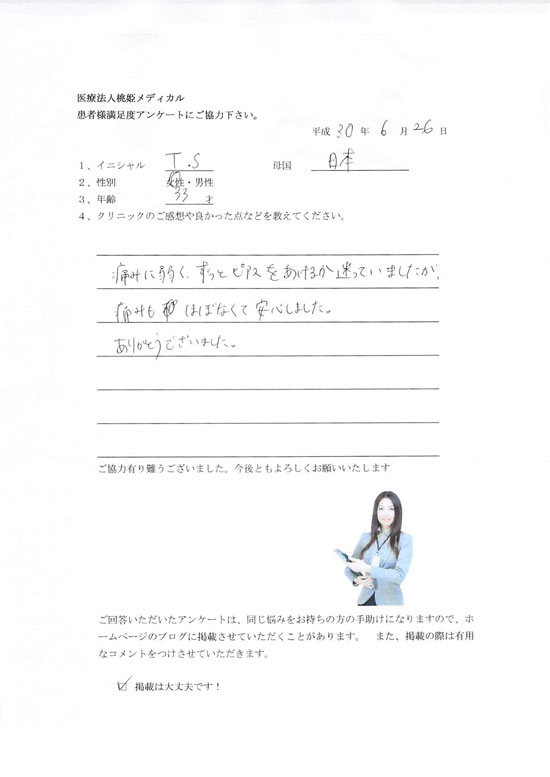 医療法人桃姫メディカル
患者様満足度アンケートにご協力下さい。
平成 30 年 6 月 26 日
1、イニシャル T.S 母国 日本
2、性別 女性・男性
3、年齢 33 才
4、クリニックのご感想や良かった点などを教えてください。
痛みに弱く、ずっとピアスをあけるか迷っていましたが、
痛みも ほぼなくて安心しました。
ありがとうございました。
ご協力有り難うございました。今後ともよろしくお願いいたします
ご回答いただいたアンケートは、同じ悩みをお持ちの方の手助けになりますので、ホ
ームページのブログに掲載させていただくことがあります。 また、掲載の際は有用
なコメントをつけさせていただきます。
☑ 掲載は大丈夫です！